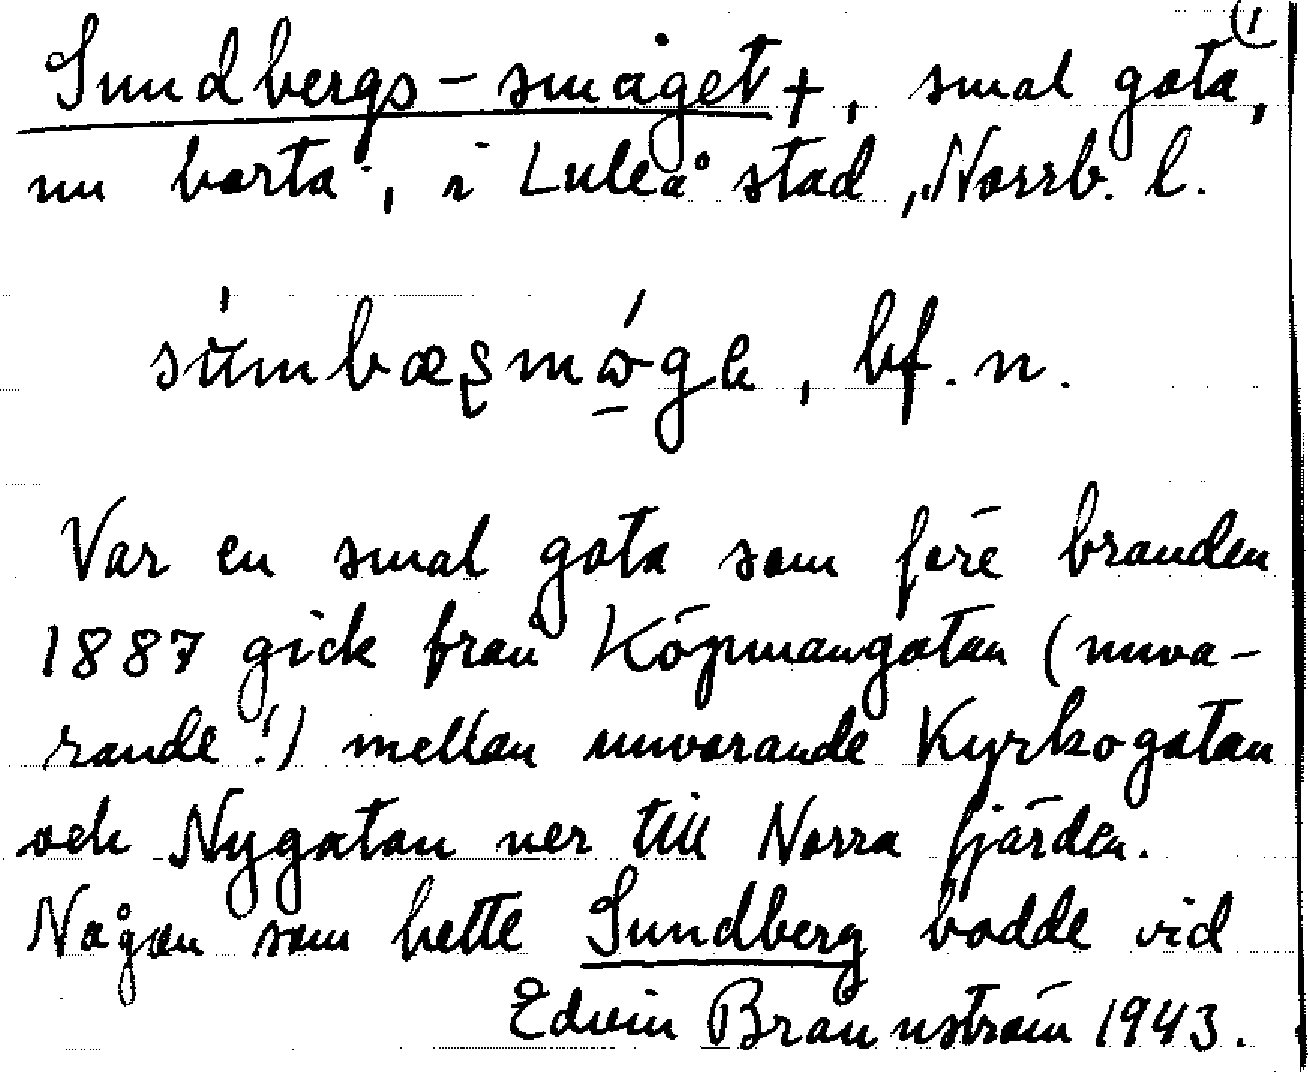 (1
Sundbergs-smöget †, smal gata,
nu borta, i Luleå stad, Norrb. l.
bf. n.
Var en smal gata som före branden
1887 gick från Köpmangatan (nuva-
rande!) mellan nuvarande Kyrkogatan
och Nygatan ner till Norra fjärden.
Någon som hette Sundberg bodde vid
Edvin Brännström 1943.